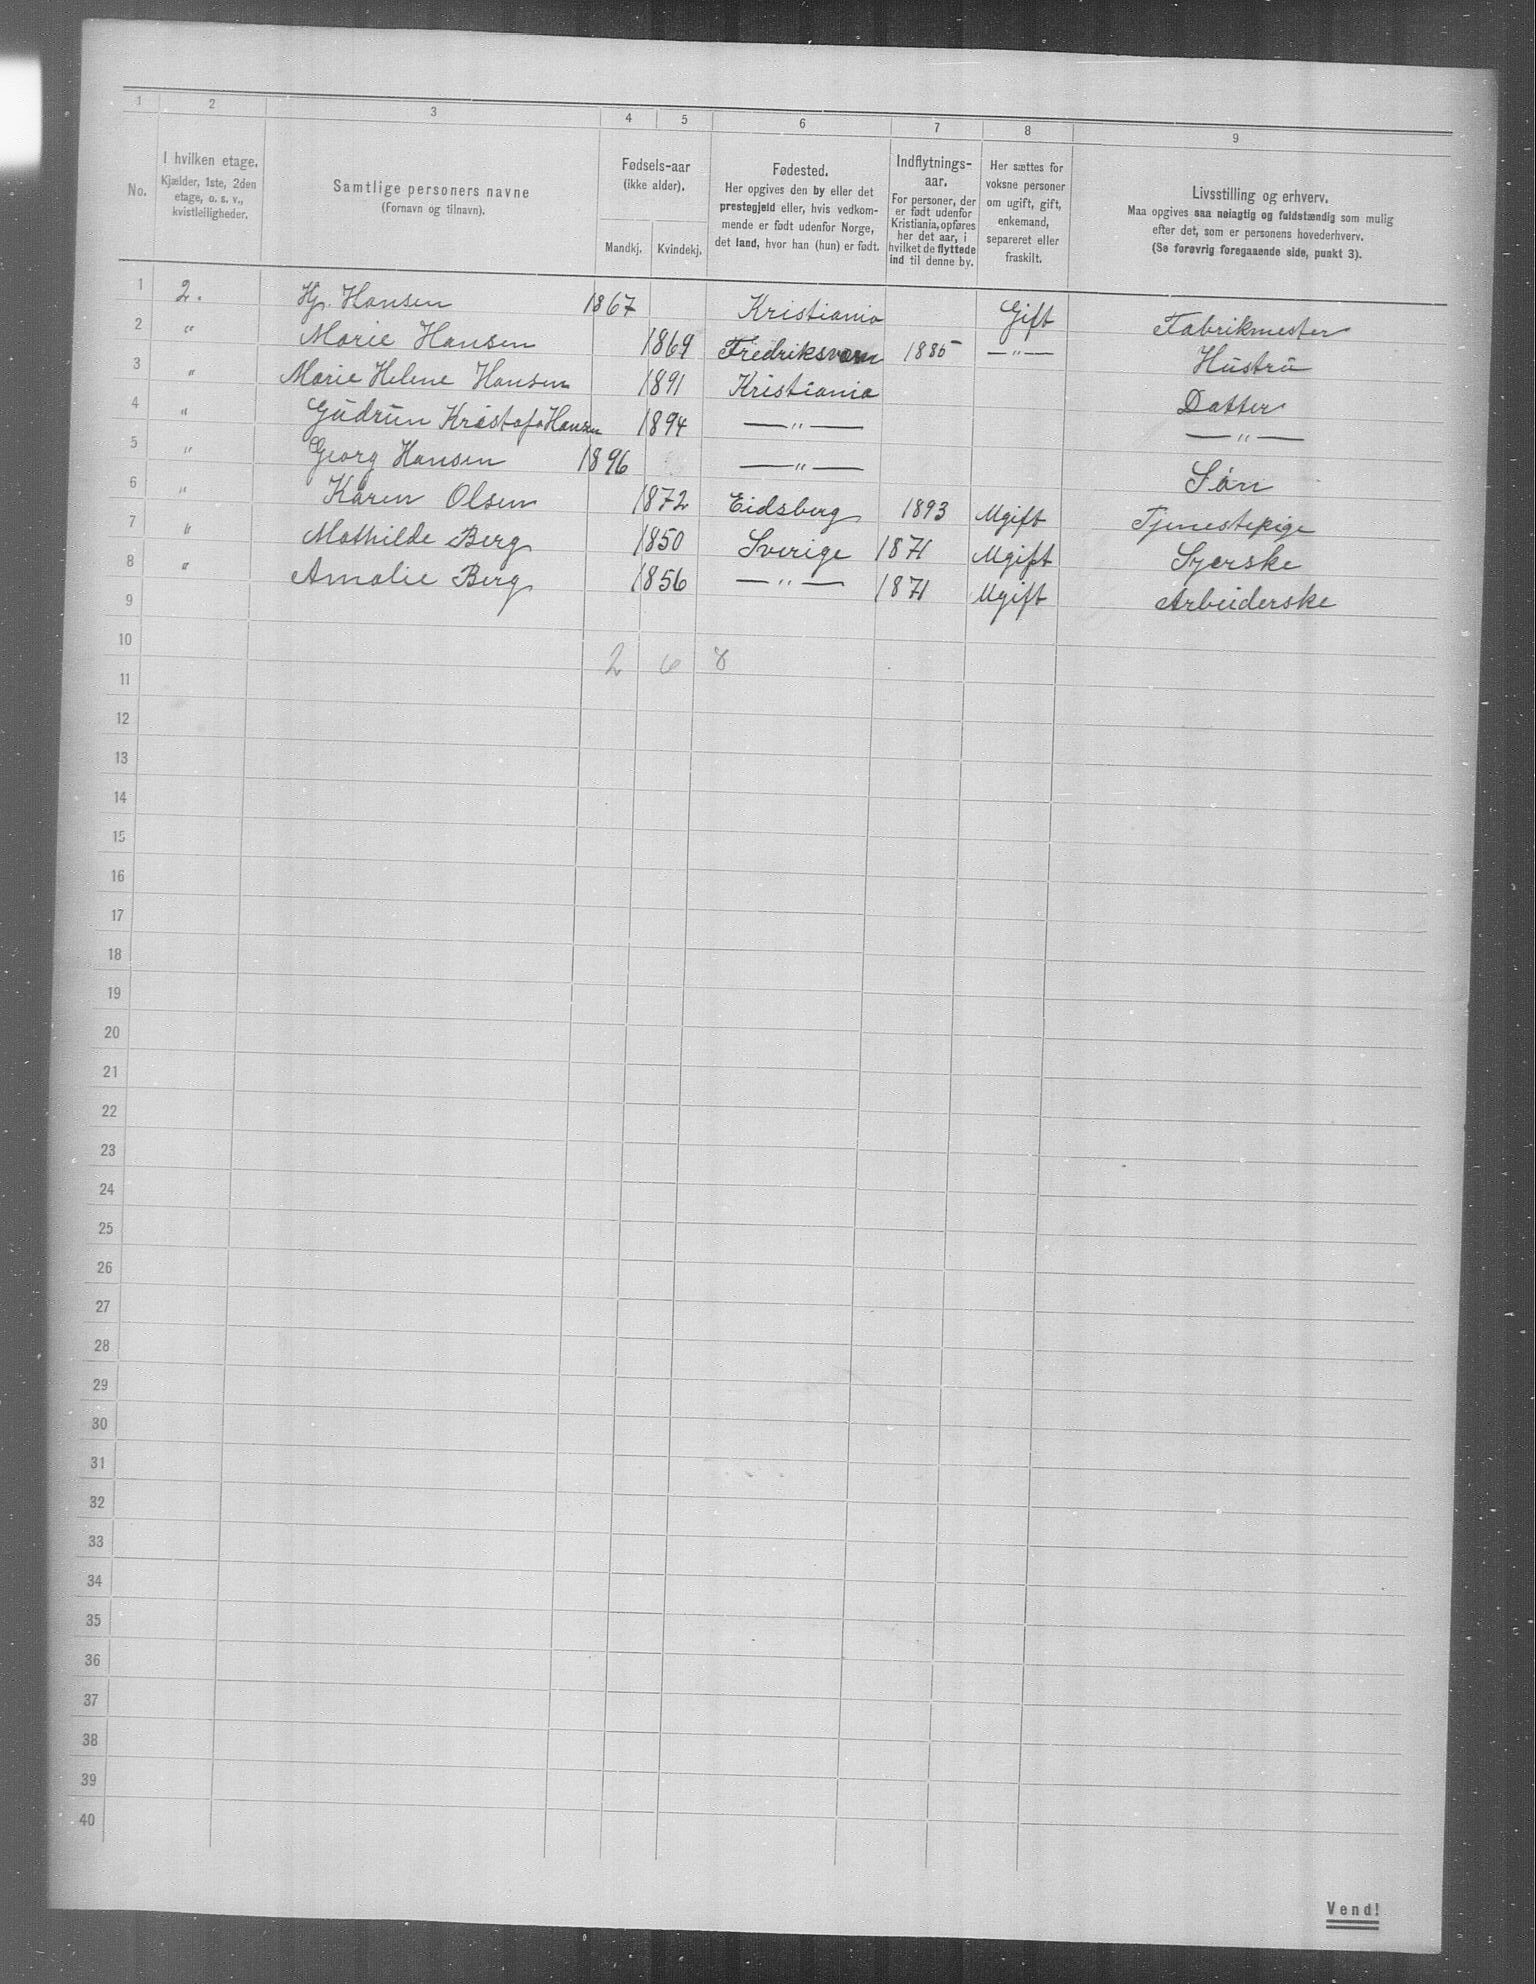 1 2 3 4 5 6 7 8 9
No. I hvilken etage. Kjælder, 1ste, 2den etage, o. s. v., kvistleiligheder. Samtlige personers navne (Fornavn og tilnavn). Fødsels-aar (ikke alder). Mandkj. Kvindekj. Fødested. Her opgives den by eller det prestegjeld eller, hvis vedkommende er født udenfor Norge, det land, hvor han (hun) er født. Indflytnings-aar. For personer, der er født udenfor Kristiania, opføres her det aar, i hvilket de flyttede ind til denne by. Her sættes for voksne personer om ugift, gift, enkemand, separeret eller fraskilt. Livsstilling og erhverv. Maa opgives saa nøiagtig og fuldstændig som mulig efter det, som er personens hovederhverv. (Se forøvrig foregaaende side, punkt 3).
1 2. Hj. Hansen 1867 Kristiania Gift Fabrikmester
2 " Marie Hansen 1869 Fredriksværn 1885 —"— Hustru
3 " Marie Helene Hansen 1891 Kristiania Datter
4 " Gudrun Hansen 1894 —"— —"—
5 " Georg Hansen 1896 —"— Søn
6 " Karen Olsen 1872 Eidsberg 1893 Ugift Tjenestepige
7 " Mathilde Berg 1850 Sverige 1871 Ugift Syerske
8 " Amalie Berg 1856 —"— 1871 Ugift Arbeiderske
9
10
2 6 8
11
12
13
14
15
16
17
18
19
20
21
22
23
24
25
26
27
28
29
30
31
32
33
34
35
36
37
38
39
40
Vend!